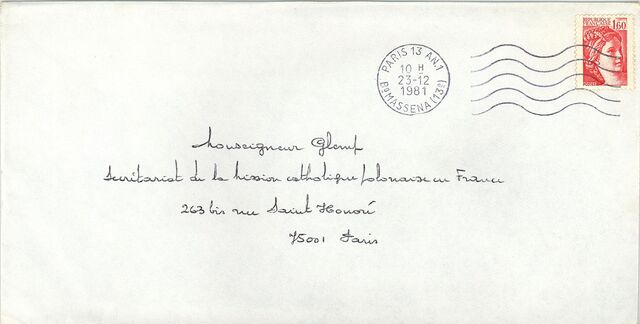 REPUBLIQUE FRANCAISE
1,60
PARIS 13 AN.1
10 H
23-12
1981
BD MASSENA (13E)
Monseigneur Glemp
Secrétariat de la mission catholique polonaise en France
263 bis rue Saint Honoré
75001 Paris